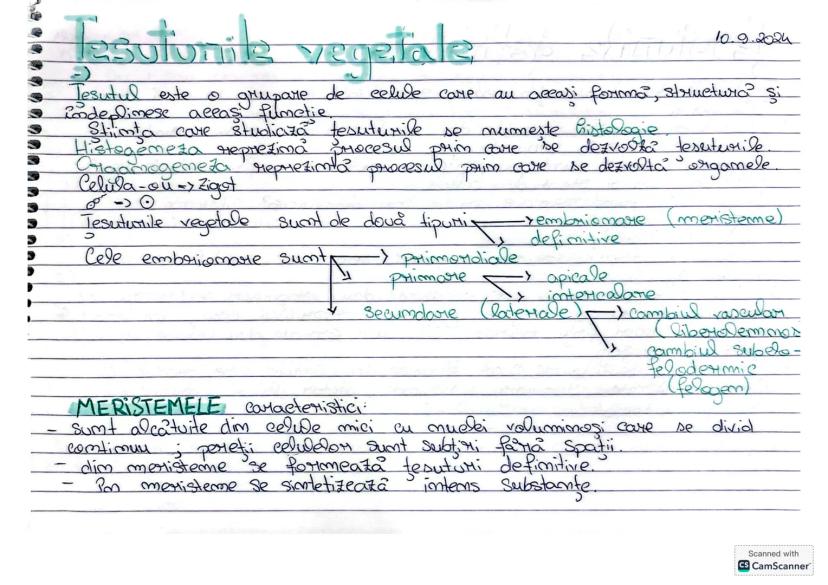 Țesuturile vegetale
10.9.2024
Țesutul este o grupare de celule care au aceași formă, structură și
îndeplinesc aceași funcție.
Știința care studiază țesuturile se numește histologie.
Histogeneza reprezină procesul prin care se dezvoltă țesuturile.
Organogeneza reprezintă procesul prin care se dezvoltă organele.
Celula-ou → zigot
Țesuturile vegetale sunt de două tipuri → embrionare (meristeme)
definitive
Cele embrionare sunt → primordiale
primare → apicale
intercalare
secundare (laterale) → cambiul vascular
(liberolemnos
cambiul subero-
felodermic
(felogen)
MERISTEMELE caracteristici:
- sunt alcătuite din celule mici cu nuclei voluminoși care se divid
continuu ; pereții celulelor sunt subțiri fără spații.
- din meristeme se formează țesuturi definitive.
- În meristeme se sintetizează intens substanțe.
Scanned with
CS CamScanner